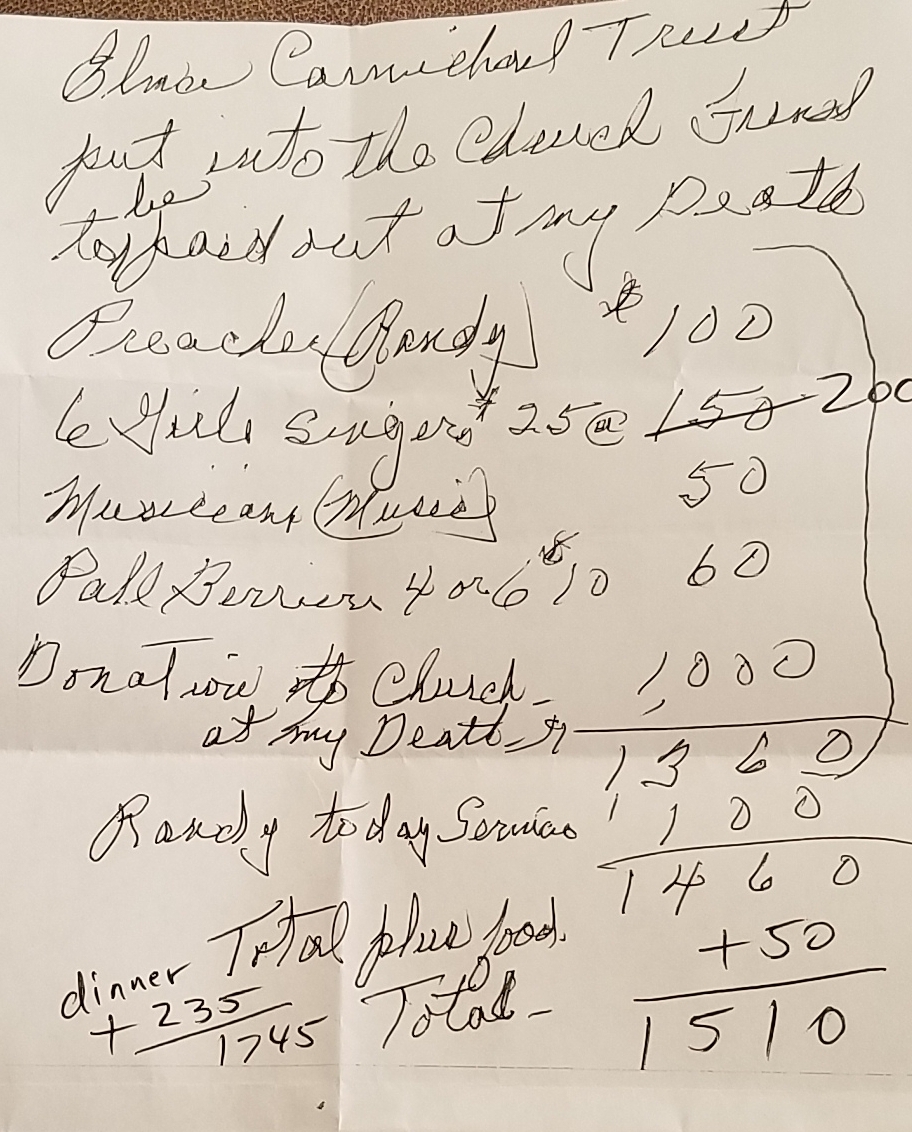 Elmae Carmichael Trust
put into the Church Friend
to be paid out at my Death
Preacher (Randy) $ 100
6 Girls Singers* 25 @ 150 200
Musicians (Music) 50
Pall Berriers 4 or 6 $10 60
Donation to Church - 1,000
at my Death -
1360
Randy today Services 100
1460
Total plus food. +50
dinner
+ 235
1745
Total - 1510